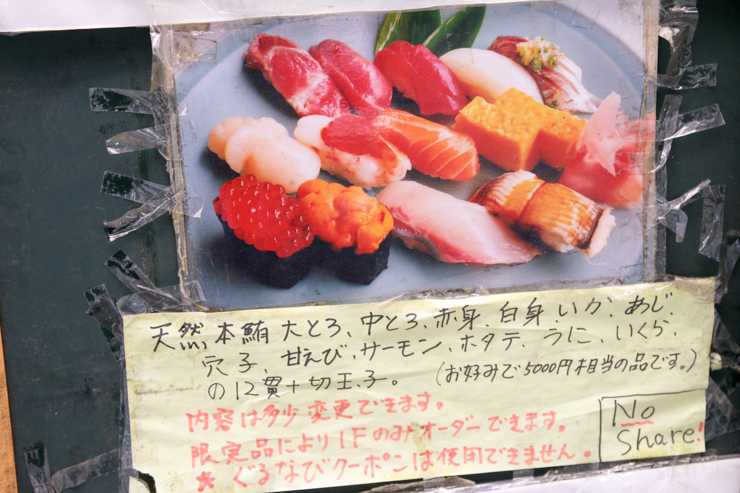 天然本鮪大とろ、中とろ、赤身、白身、いか、あじ、
穴子、甘えび、サーモン、ホタテ、うに、いくら、
の12貫+切玉子。(お好みで5000円相当の品です。)
内容は多少変更できます。
限定品により1Fのみオーダーできます。
★ぐるなびクーポンは使用できません。
No
Share!